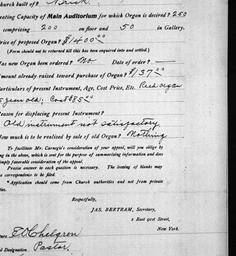 Church built of? Brick.
Seating Capacity of Main Auditorium for which Organ is desired? 250
comprising 200 on floor and 50 in Gallery.
Price of proposed Organ? $1400.00
(Form should not be returned till this has been enquired into and settled.)
Was new Organ been ordered? No Date of order?
Amount already raised toward purchase of Organ? $137.
Particulars of present Instrument, Age, Cost Price, Etc. Reed organ
years old; Cost $85.00
Reason for displacing present Instrument?
Old instrument not satisfactory
How much is to be realized by sale of old Organ? Nothing
To facilitate Mr. Carnegie's consideration of your appeal, will you oblige by
in the above, which is sent for the purpose of summarizing information and does
imply favorable consideration of the appeal.
Precise answer to each question is necessary. The issuing of blanks may
correspondence to be filed.
*Application should come from Church authorities and not from private
Respectfully,
JAS. BERTRAM, Secretary,
2 East 91st Street,
New York.
E. O. Chelgren
Designation Pastor.